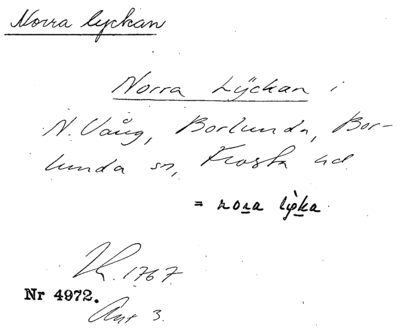 Norra lyckan
Norra Lÿckan i
N. Vång, Borlunda, Bor-
lunda sn, Frosta hd
= nora lÿka
1767.
Nr 4972.
Akt 3.